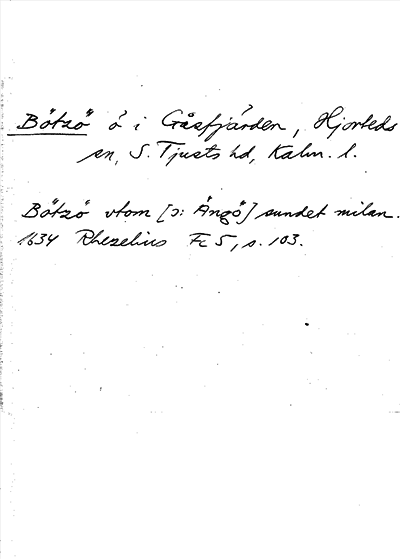 Bötzö ö i Gåsfjärden, Hjorteds
sn, S. Tjusts hd, Kalm. l.
Bötzö utom [ɔ: Ängö] sundet milan.
1634 Rhezelius Fc 5, s. 103.